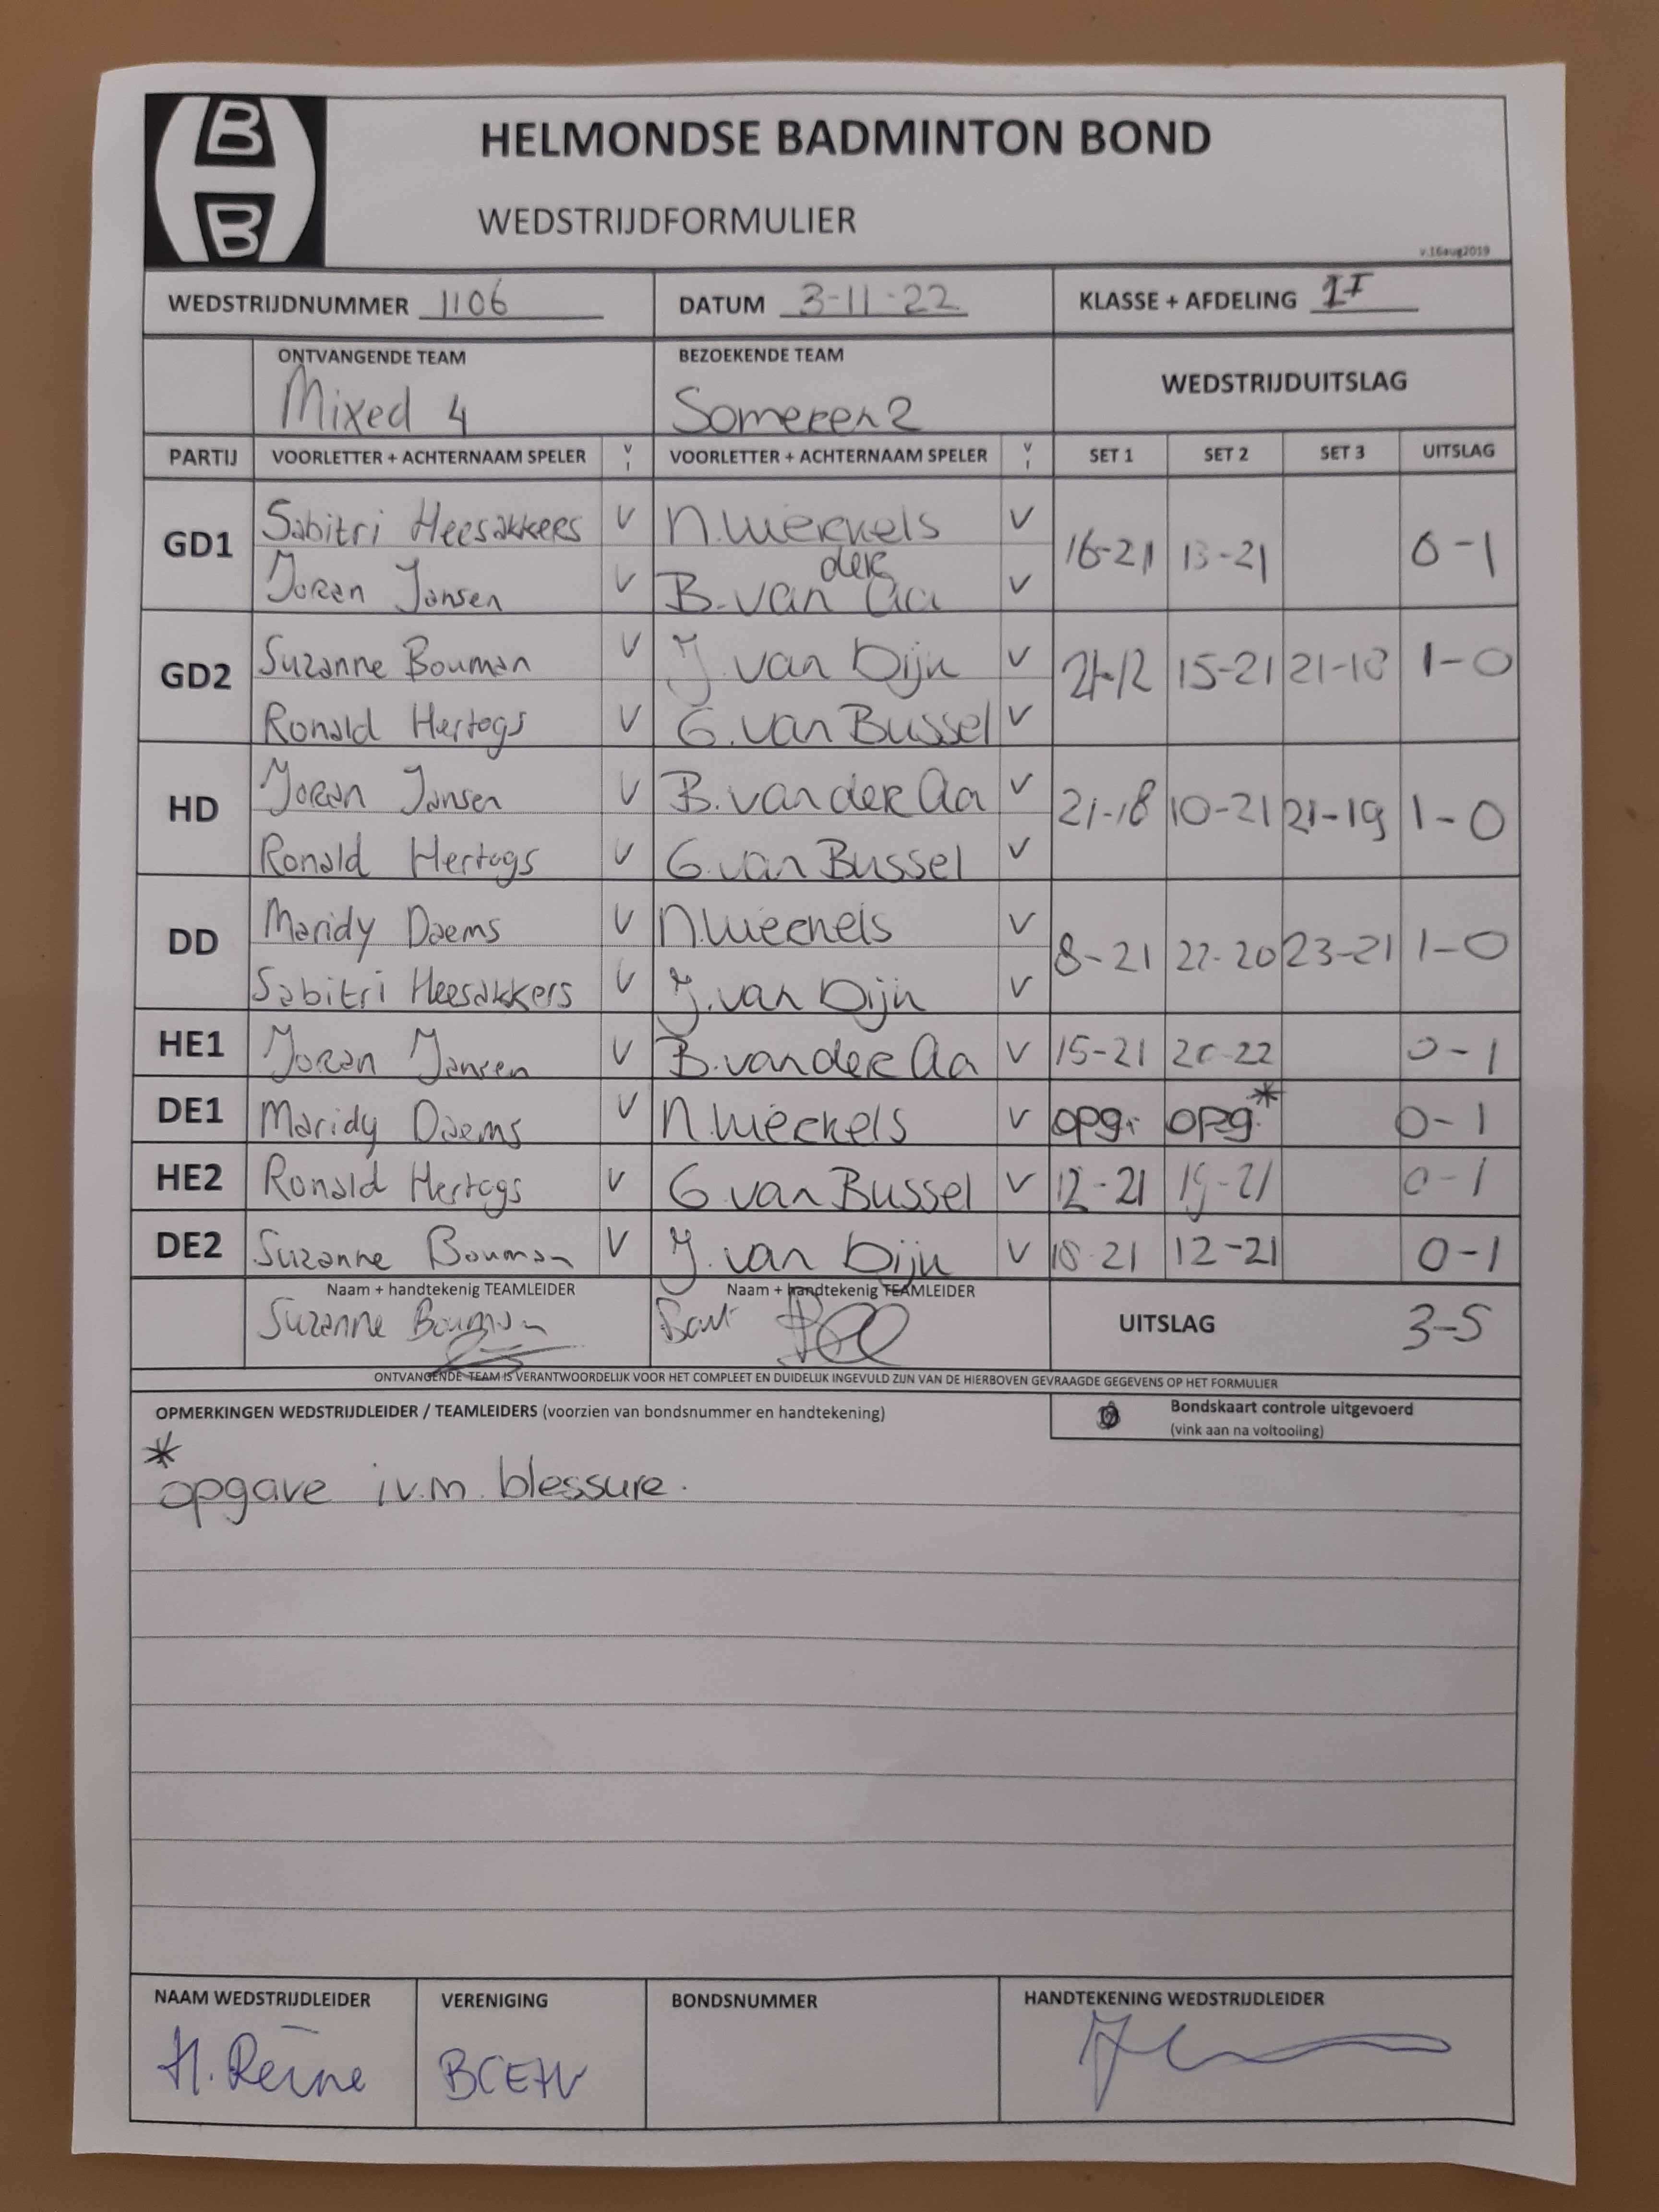 B
B
HELMONDSE BADMINTON BOND
WEDSTRIJDFORMULIER
v.16aug2019
WEDSTRIJDNUMMER 1106 DATUM 3-11-22 KLASSE + AFDELING
ONTVANGENDE TEAM BEZOEKENDE TEAM WEDSTRIJDUITSLAG
Mixed 4 Someren 2
PARTIJ VOORLETTER + ACHTERNAAM SPELER V I VOORLETTER + ACHTERNAAM SPELER V I SET 1 SET 2 SET 3 UITSLAG
GD1 Sabitri Heesakkers V N. V 16-21 13-21 0-1
Joran Jansen V B. van der Aa V
GD2 Suzanne Bouman V J. van Dijn V 21-12 15-21 21-18 1-0
Ronald Hertogs V G. van Bussel V
HD Joran Jansen V B. van der Aa V 21-18 10-21 21-19 1-0
Ronald Hertogs V G. van Bussel V
DD Maridy Daems V N. V 8-21 22-20 23-21 1-0
Sabitri Heesakkers V J. van Dijn V
HE1 Joran Jansen V B. van der Aa V 15-21 20-22 0-1
DE1 Maridy Daems V N. V opg. opg.* 0-1
HE2 Ronald Hertogs V G van Bussel V 12-21 19-21 0-1
DE2 Suzanne Bouman V J. van Dijn V 18-21 12-21 0-1
Naam + handtekenig TEAMLEIDER Naam + handtekenig TEAMLEIDER
Suzanne Bouman Bart UITSLAG 3-5
ONTVANGENDE TEAM IS VERANTWOORDELIJK VOOR HET COMPLEET EN DUIDELIJK INGEVULD ZIJN VAN DE HIERBOVEN GEVRAAGDE GEGEVENS OP HET FORMULIER
OPMERKINGEN WEDSTRIJDLEIDER / TEAMLEIDERS (voorzien van bondsnummer en handtekening) Bondskaart controle uitgevoerd
(vink aan na voltooiing)
*
opgave i.v.m. blessure.
NAAM WEDSTRIJDLEIDER VERENIGING BONDSNUMMER HANDTEKENING WEDSTRIJDLEIDER
H. Reine BCEHV